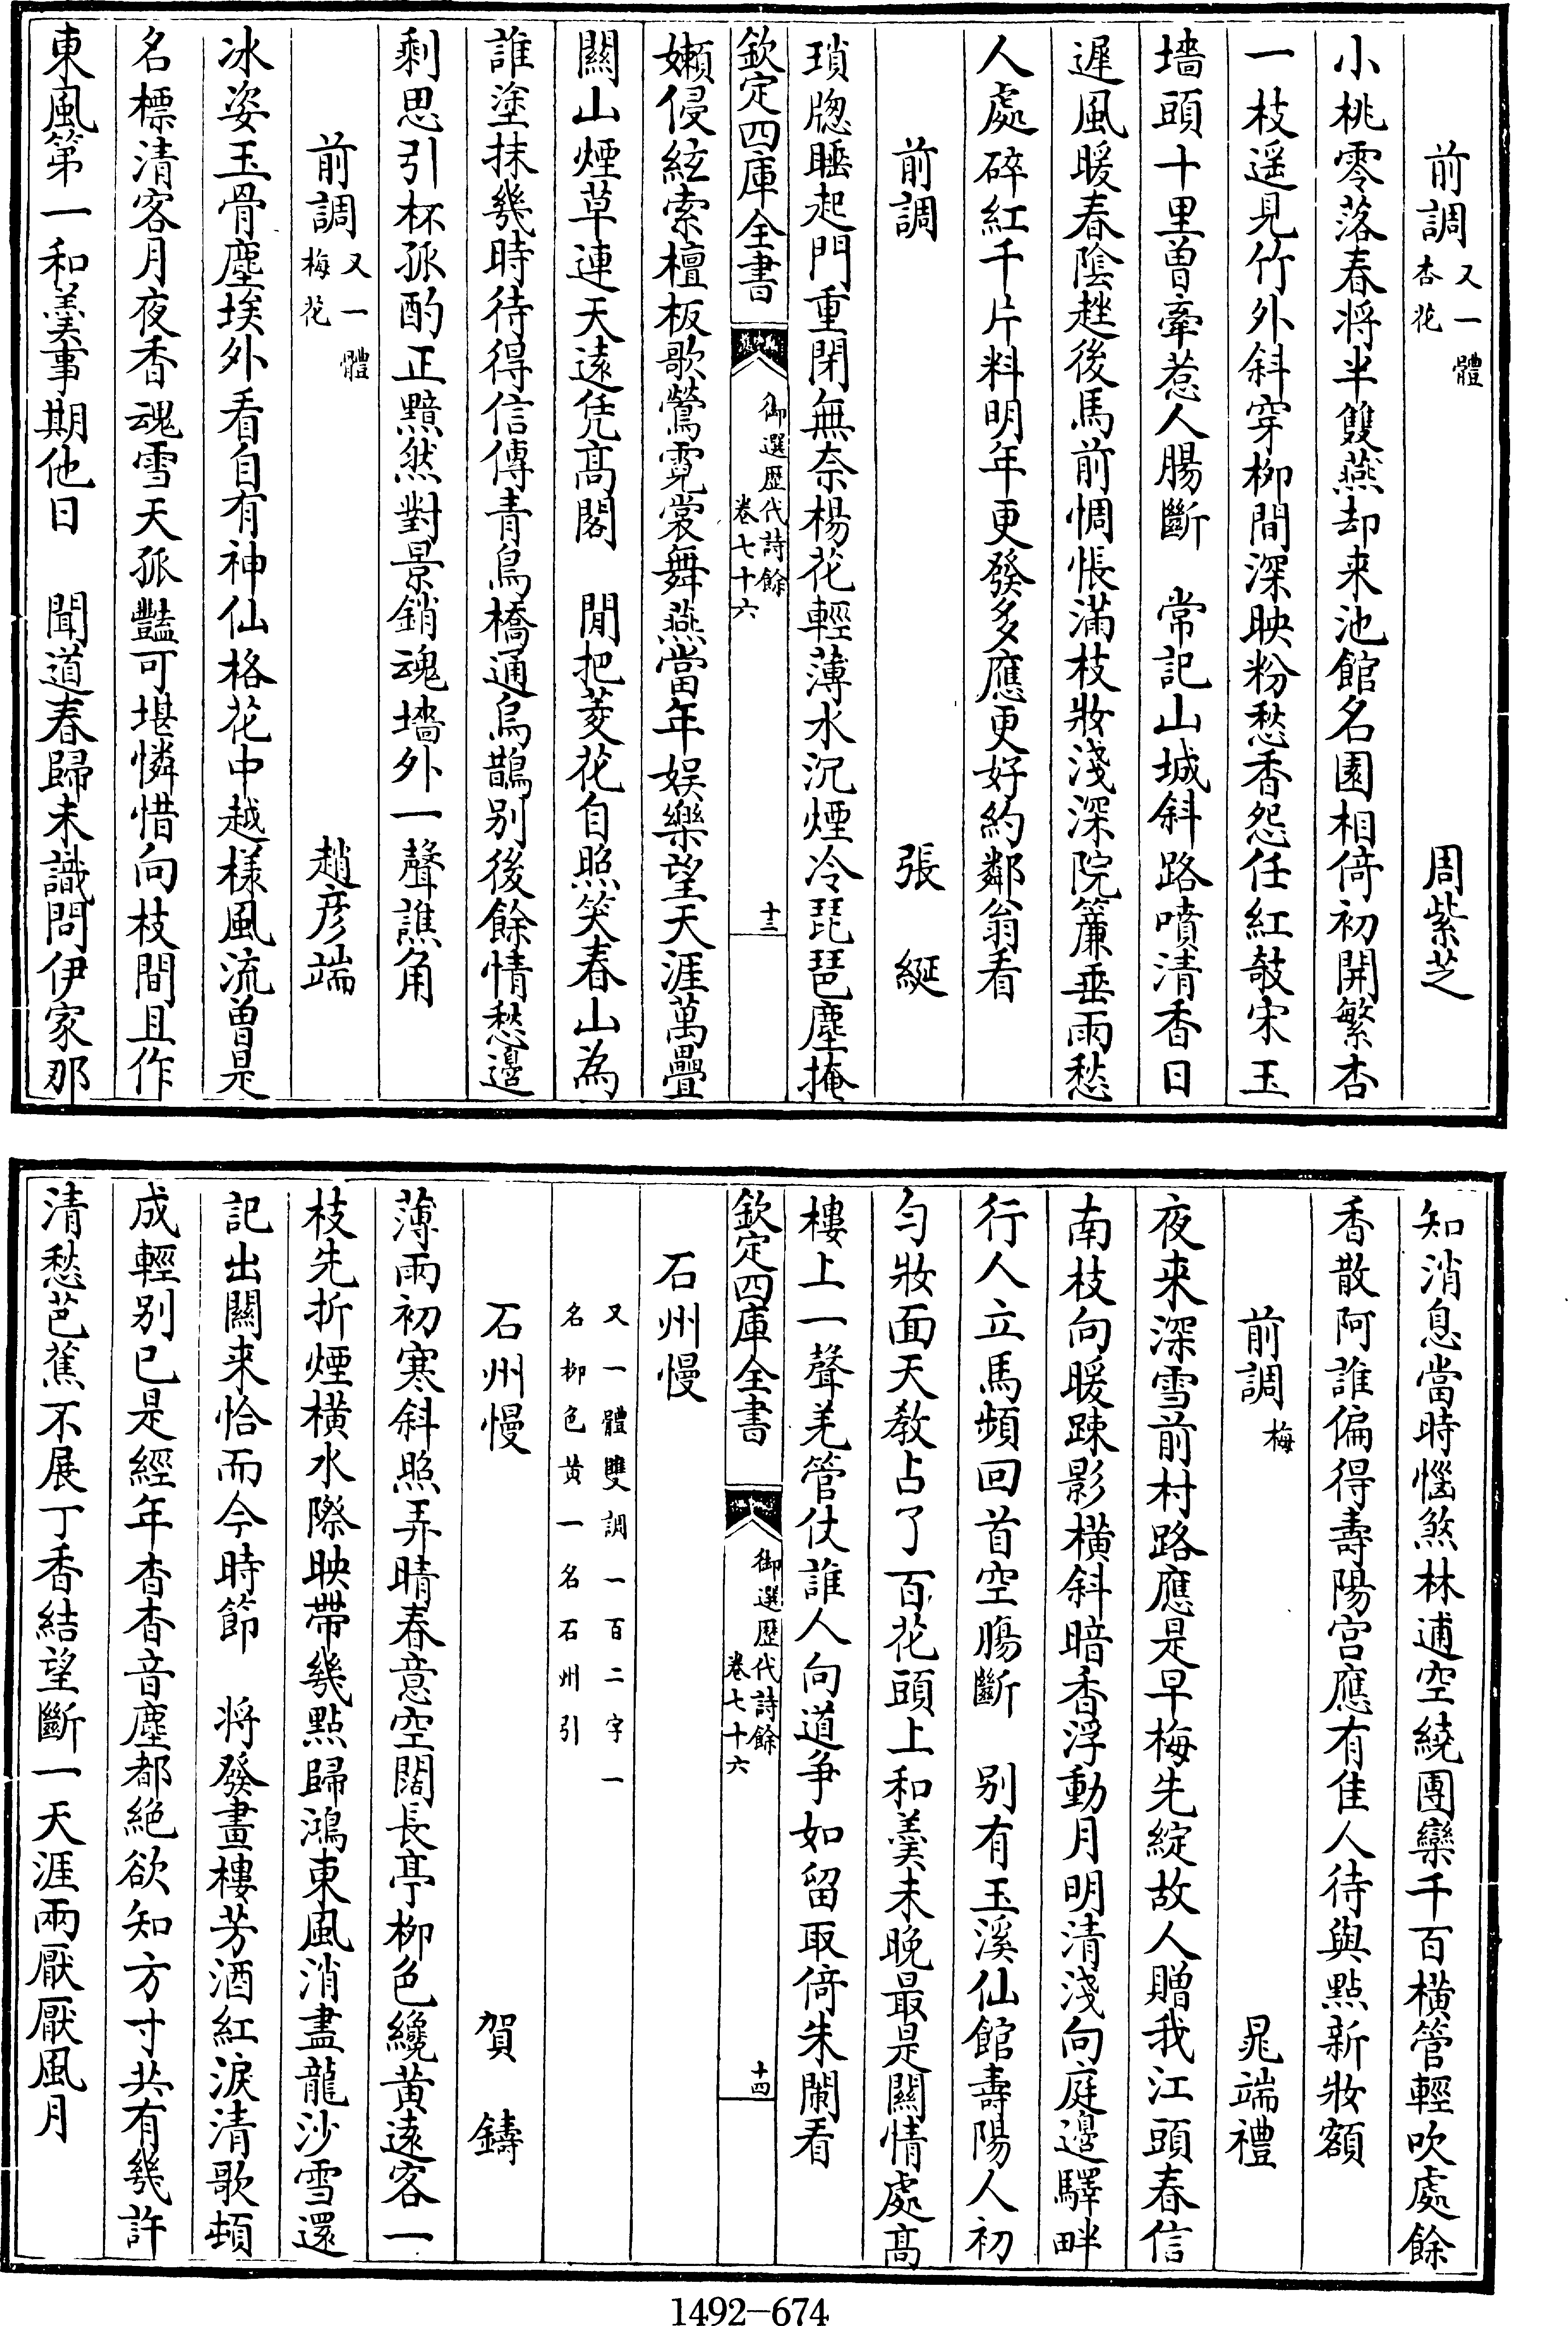 前調又一體杏花　周紫芝
小桃零落春将半雙燕却来池館名園相倚初開繁杏
一枝遥見竹外斜穿柳間深映粉愁香怨任紅攲宋玉
墻頭十里曽牽惹人腸斷　常記山城斜路噴清香日
遲風暖春陰挫後馬前惆悵滿枝妝淺深院簾垂雨愁
人處碎紅千片料明年更發多應更好約鄰翁看
前調　張綖
瑣牎睡起門重閉無奈楊花輕薄水沉煙冷琵琶塵掩
欽定四庫全書　御選歴代詩餘卷七十六　十三
嬾侵絃索檀板歌鶯霓裳舞燕當年娱樂望天涯萬疊
關山煙草連天遠凭髙閣　閒把菱花自照笑春山為
誰塗抹幾時待得信傳青鳥橋通烏鵲别後餘情愁邉
剩思引杯孤酌正黯然對景銷魂墻外一聲譙角
前調又一體梅花　趙彦端
冰姿玉骨塵埃外看自有神仙格花中越様風流曽是
名標清客月夜香魂雪天孤豔可堪憐惜向枝間且作
東風第一和羮事期他日　聞道春歸未識問伊家那
知消息當時惱煞林逋空繞團欒千百横管輕吹處餘
香散阿誰偏得壽陽宫應有佳人待與點新妝額
前調梅　晁端禮
夜来深雪前村路應是早梅先綻故人贈我江頭春信
南枝向暖踈影横斜暗香浮動月明清淺向庭邉驛畔
行人立馬頻回首空腸斷　别有玉溪仙館壽陽人初
勻妝面天教占了百花頭上和羮未晚最是關情處髙
樓上一聲羌管仗誰人向道争如留取倚朱闌看
欽定四庫全書　御選歴代詩餘卷七十六　十四
石州慢
又一體雙調一百二字一
名柳色黄一名石州引
石州慢　賀鑄
薄雨初寒斜照弄晴春意空闊長亭柳色纔黄遠客一
枝先折煙横水際映帶幾點歸鴻東風消盡龍沙雪還
記出關来恰而今時節　将發畫樓芳酒紅淚清歌頓
成輕别已是經年杳杳音塵都絶欲知方寸共有幾許
清愁芭蕉不展丁香結望斷一天涯兩厭厭風月
1492-674